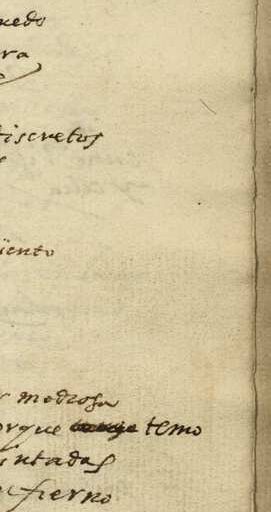 uedo
ra
discretos
iento
r medrosa
orque temo
intadas
nfierno